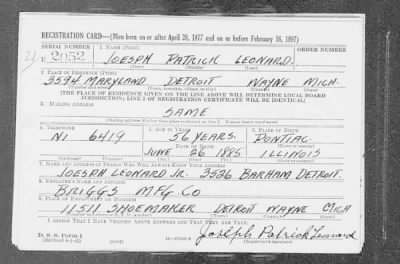 REGISTRATION CARD—(Men born on or after April 28, 1877 and on or before February 16, 1897)
SERIAL NUMBER 1. NAME (Print) ORDER NUMBER
U 2052 JOESPH PATRICK LEONARD
(First) (Middle) (Last)
2. PLACE OF RESIDENCE (Print)
3594 MARYLAND DETROIT WAYNE MICH.
(Number and street) (Town, township, village, or city) (County) (State)
[THE PLACE OF RESIDENCE GIVEN ON THE LINE ABOVE WILL DETERMINE LOCAL BOARD
JURISDICTION; LINE 2 OF REGISTRATION CERTIFICATE WILL BE IDENTICAL]
3. MAILING ADDRESS
SAME
[Mailing address if other than place indicated on line 2. If same insert word same]
4. TELEPHONE 5. AGE IN YEARS 6. PLACE OF BIRTH
NI 6419 56 YEARS. PONTIAC.
DATE OF BIRTH
JUNE 26 1885 ILLINOIS
7. NAME AND ADDRESS OF PERSON WHO WILL ALWAYS KNOW YOUR ADDRESS
JOESPH LEONARD JR. 3536 BARHAM DETROIT.
8. EMPLOYER'S NAME AND ADDRESS
BRIGGS MFG CO
9. PLACE OF EMPLOYMENT OR BUSINESS
11511 SHOEMAKER DETROIT WAYNE MICH
I AFFIRM THAT I HAVE VERIFIED ABOVE ANSWERS AND THAT THEY ARE TRUE.
D. S. S. Form 1
(Revised 4-1-42) (over)
Joseph Patrick Leonard
(Registrant's signature)